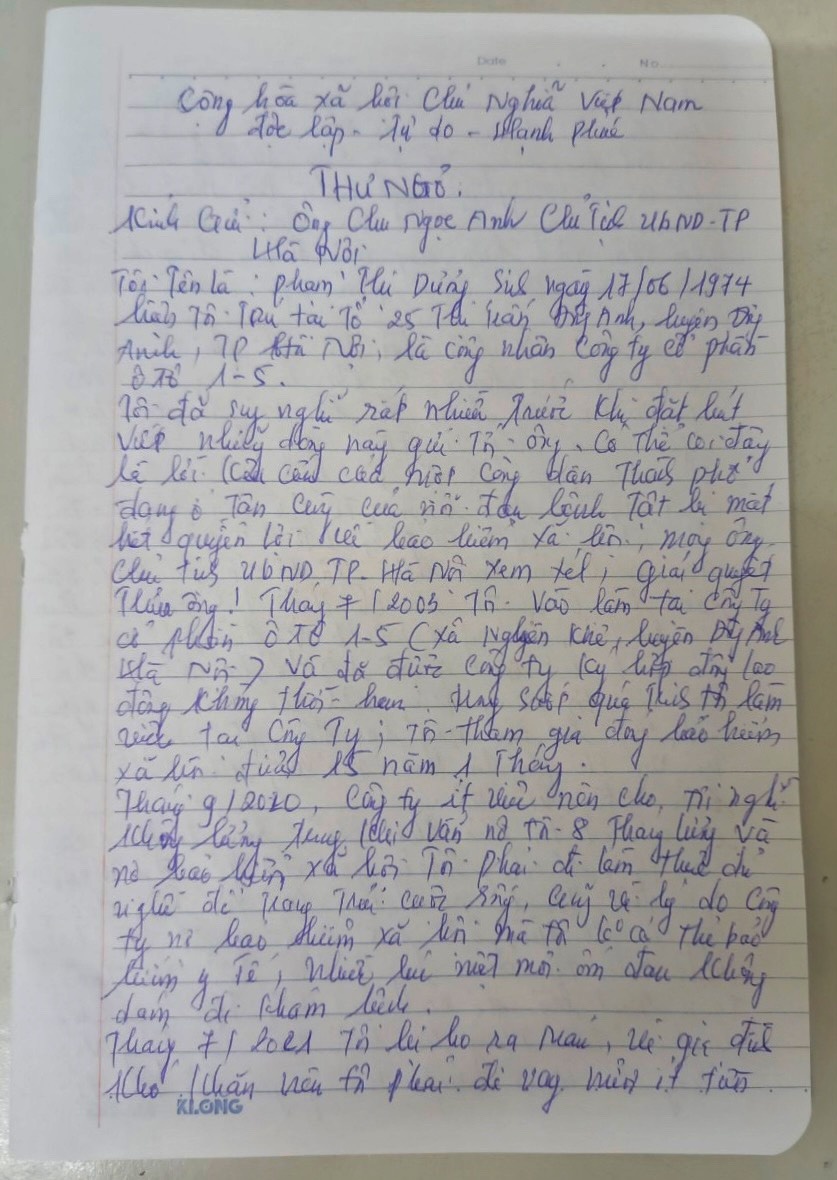 Date . . No
Cộng hòa xã hội Chủ Nghĩa Việt Nam
độc lập - Tự do - Hạnh phúc
THƯ NGỎ.
Kính Gửi: Ông Chu Ngọc Anh Chủ Tịch UBND-TP
Hà Nội
Tôi Tên là: phạm Thị Dung Sinh ngày 17/06/1974
hiện Tôi Trú tại Tổ 25 Thị trấn Đông Anh, huyện Đông
Anh, TP Hà Nội, là công nhân Công ty cổ phần
ô Tô 1-5.
Tôi đã suy nghĩ rất nhiều Trước Khi đặt bút
viết những dòng này gửi Tới ông, Có Thể coi đây
là lời cầu cứu của một công dân Thành phố
đang ở Tận cùng của nỗi đau bệnh Tật bị mất
hết quyền lợi về bảo hiểm xã hội, mong ông
Chủ tịch UBND, TP-Hà Nội xem xét, giải quyết
Thưa ông! Tháng 7/2003 Tôi vào làm tại Công Ty
cổ phần ô Tô 1-5 (xã Nguyên Khê, huyện Đông Anh
Hà Nội) và đã được công ty ký hợp đồng lao
động không thời hạn. Trong suốt quá Trình Tôi làm
việc tại Công Ty, Tôi tham gia đóng bảo hiểm
xã hội được 15 năm 1 Tháng.
Tháng 9/2020, Công ty ít việc nên cho Tôi nghỉ
không lương, trong khi vẫn nợ tôi 8 Tháng lương và
nợ bảo hiểm xã hội Tôi phải đi làm thuê đủ
nghề để Trang Trải cuộc sống, cũng vì lý do Công
ty nợ bảo hiểm xã hội mà tôi có Thẻ bảo
hiểm y Tế, nhiều lúc mệt mỏi ốm đau không
dám đi khám bệnh.
Tháng 7/2021 Tôi bị ho ra máu, vì gia đình
khó khăn nên tôi phải đi vay mượn ít tiền
KLONG